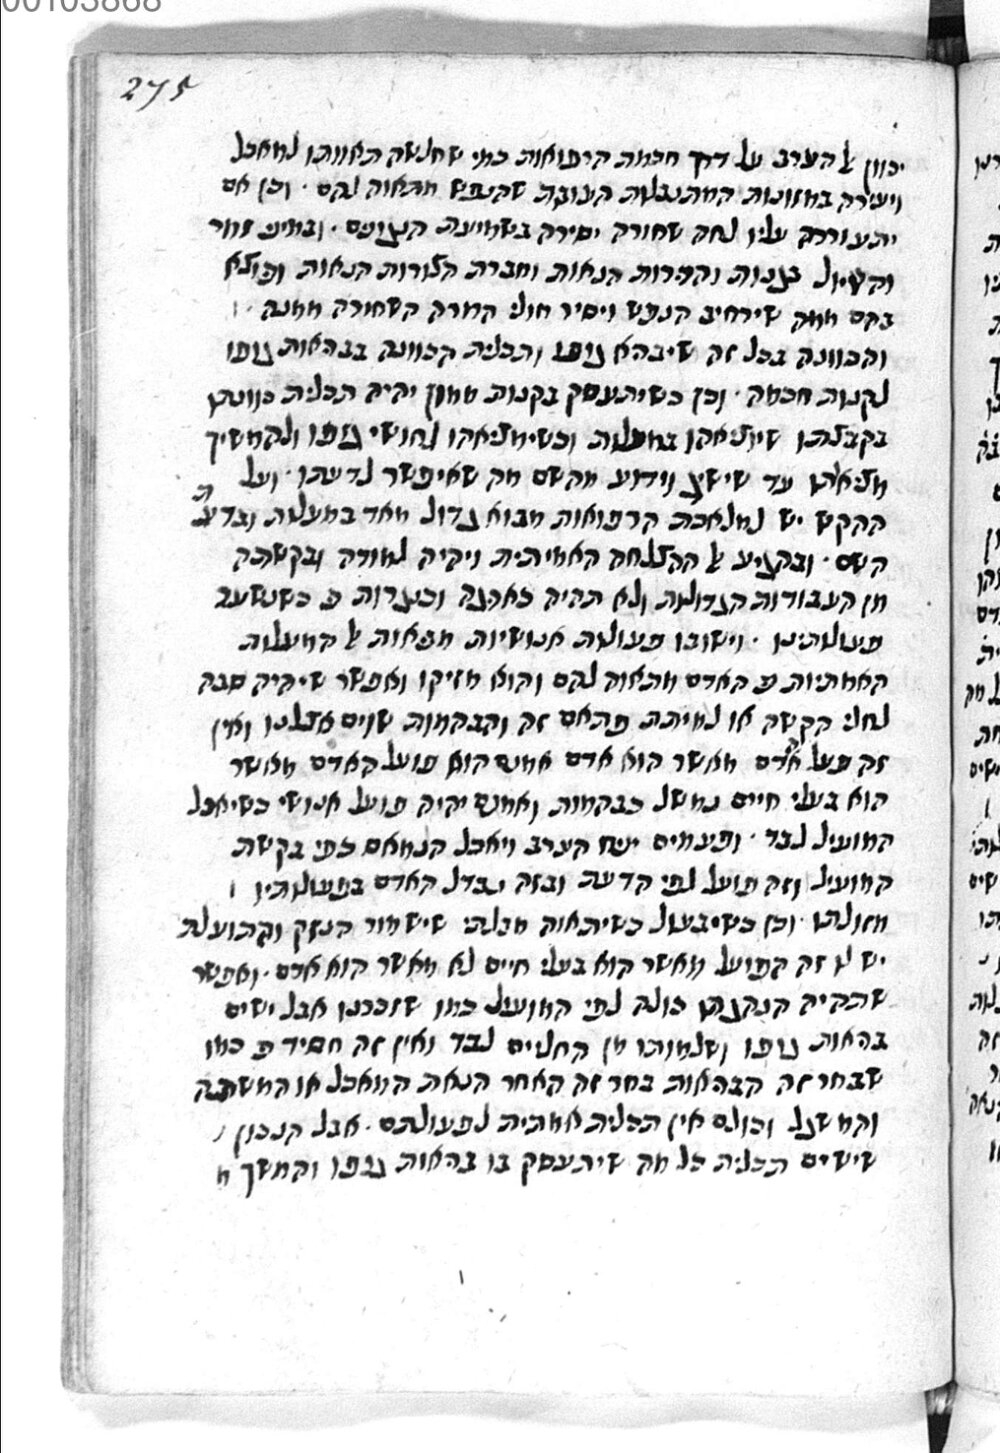 00103868
275
יכוון אל הערב על דרך חכמת הרפואות כמי שחלשה תאוותו למאכל
ויעירה במזונות המתובלות הערבות שהנפש מתאוה להם · וכן אם
יתעוררה עליו לחה שחורה יסירה בשמיעת הנגונים · ובמיני זמר
והטיול בגנות נהדרות הנאות וחברת הצורות הנאות וכיוצא
בהם ממה שירחיב הנפש ויסיר חולי המרה השחורה ממנה ·
והכוונה בכל זה שיבריא גופו ותכלית הכוונה בבריאות גופו
לקנות חכמה · וכן כשיתעסק בקנות ממון יהיה תכלית כוונתו
בקבצתו שיוציאהו במעלות וכשימציאהו לחושי גופו ולהמשיך
מציאותו עד שישיג וידוע מהשם מה שאיפשר לדעתו · ועל
ההקש יש למלאכת הרפואות מבוא גדול מאד במעלות ובדעת
השם · ובהגיע אל ההצלחה האמיתית ויהיה למודה ובקשתה
מן העבודות הגדולות ולא תהיה כאריגה וכנגרות כי בה נשער
פעולותינו · וישובו פעולות אנושיות מביאות אל המעלות
האמתיות כי האדם מתאוה להם והוא מזיקו ואפשר שיהיה סבה
לחלי הקשה או למיתת פתאם זה והבהמות שוים אצלנו ואין
זה פעל אדם מאשר הוא אדם אמנם הוא פועל האדם מאשר
הוא בעלי חיים נמשל כבהמות ואמנם יהיה פועל אנושי כשיאכל
המועיל לבד · ופעמים יניח הערב ויאכל הנמאס כפי בקשת
המועיל וזה פועל לפי הדעת ובזה נבדל האדם בפעולותיו
מזולתו · וכן כשיבעול כשיתאוה מבלתי שישמור הנזק והתועלת
יש לו זה הפועל מאשר הוא בעלי חיים לא מאשר הוא אדם · ואפשר
שתהיה הנהגתו כולה לפי המועיל כמו שזכרנו אבל ישים
בריאות גופו ושלמותו מן החליים לבד ואין זה חסיד כי כמו
שבחר זה הבריאות בחר זה האחר הנאת המאכל או המשתה
והמשגל וכולם אין תכלית אמתית לפעולתם · אבל הנכון
שישים תכלית כל מה שיתעסק בו בריאות גופו והמשך